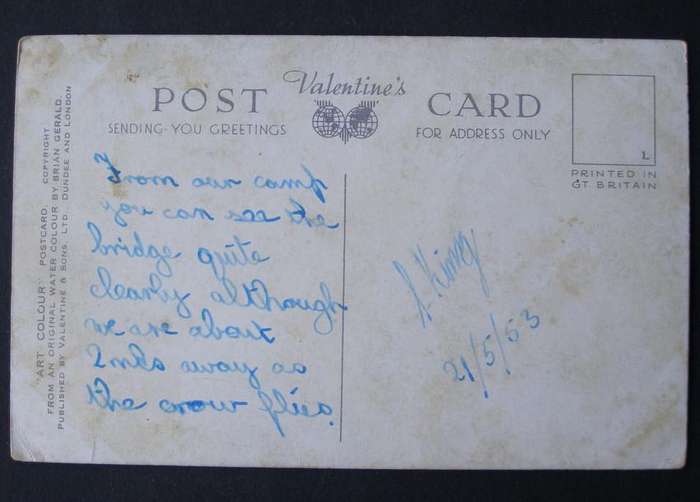 Valentine's
POST CARD
SENDING YOU GREETINGS
FOR ADDRESS ONLY
L
PRINTED IN
GT. BRITAIN
"ART COLOUR" POSTCARD. COPYRIGHT
FROM AN ORIGINAL WATER COLOUR BY BRIAN GERALD
PUBLISHED BY VALENTINE & SONS, LTD., DUNDEE AND LONDON
From our camp
you can see the
bridge quite
clearly although
we are about
2mls away as
the crow flies.
A. King
21/5/53